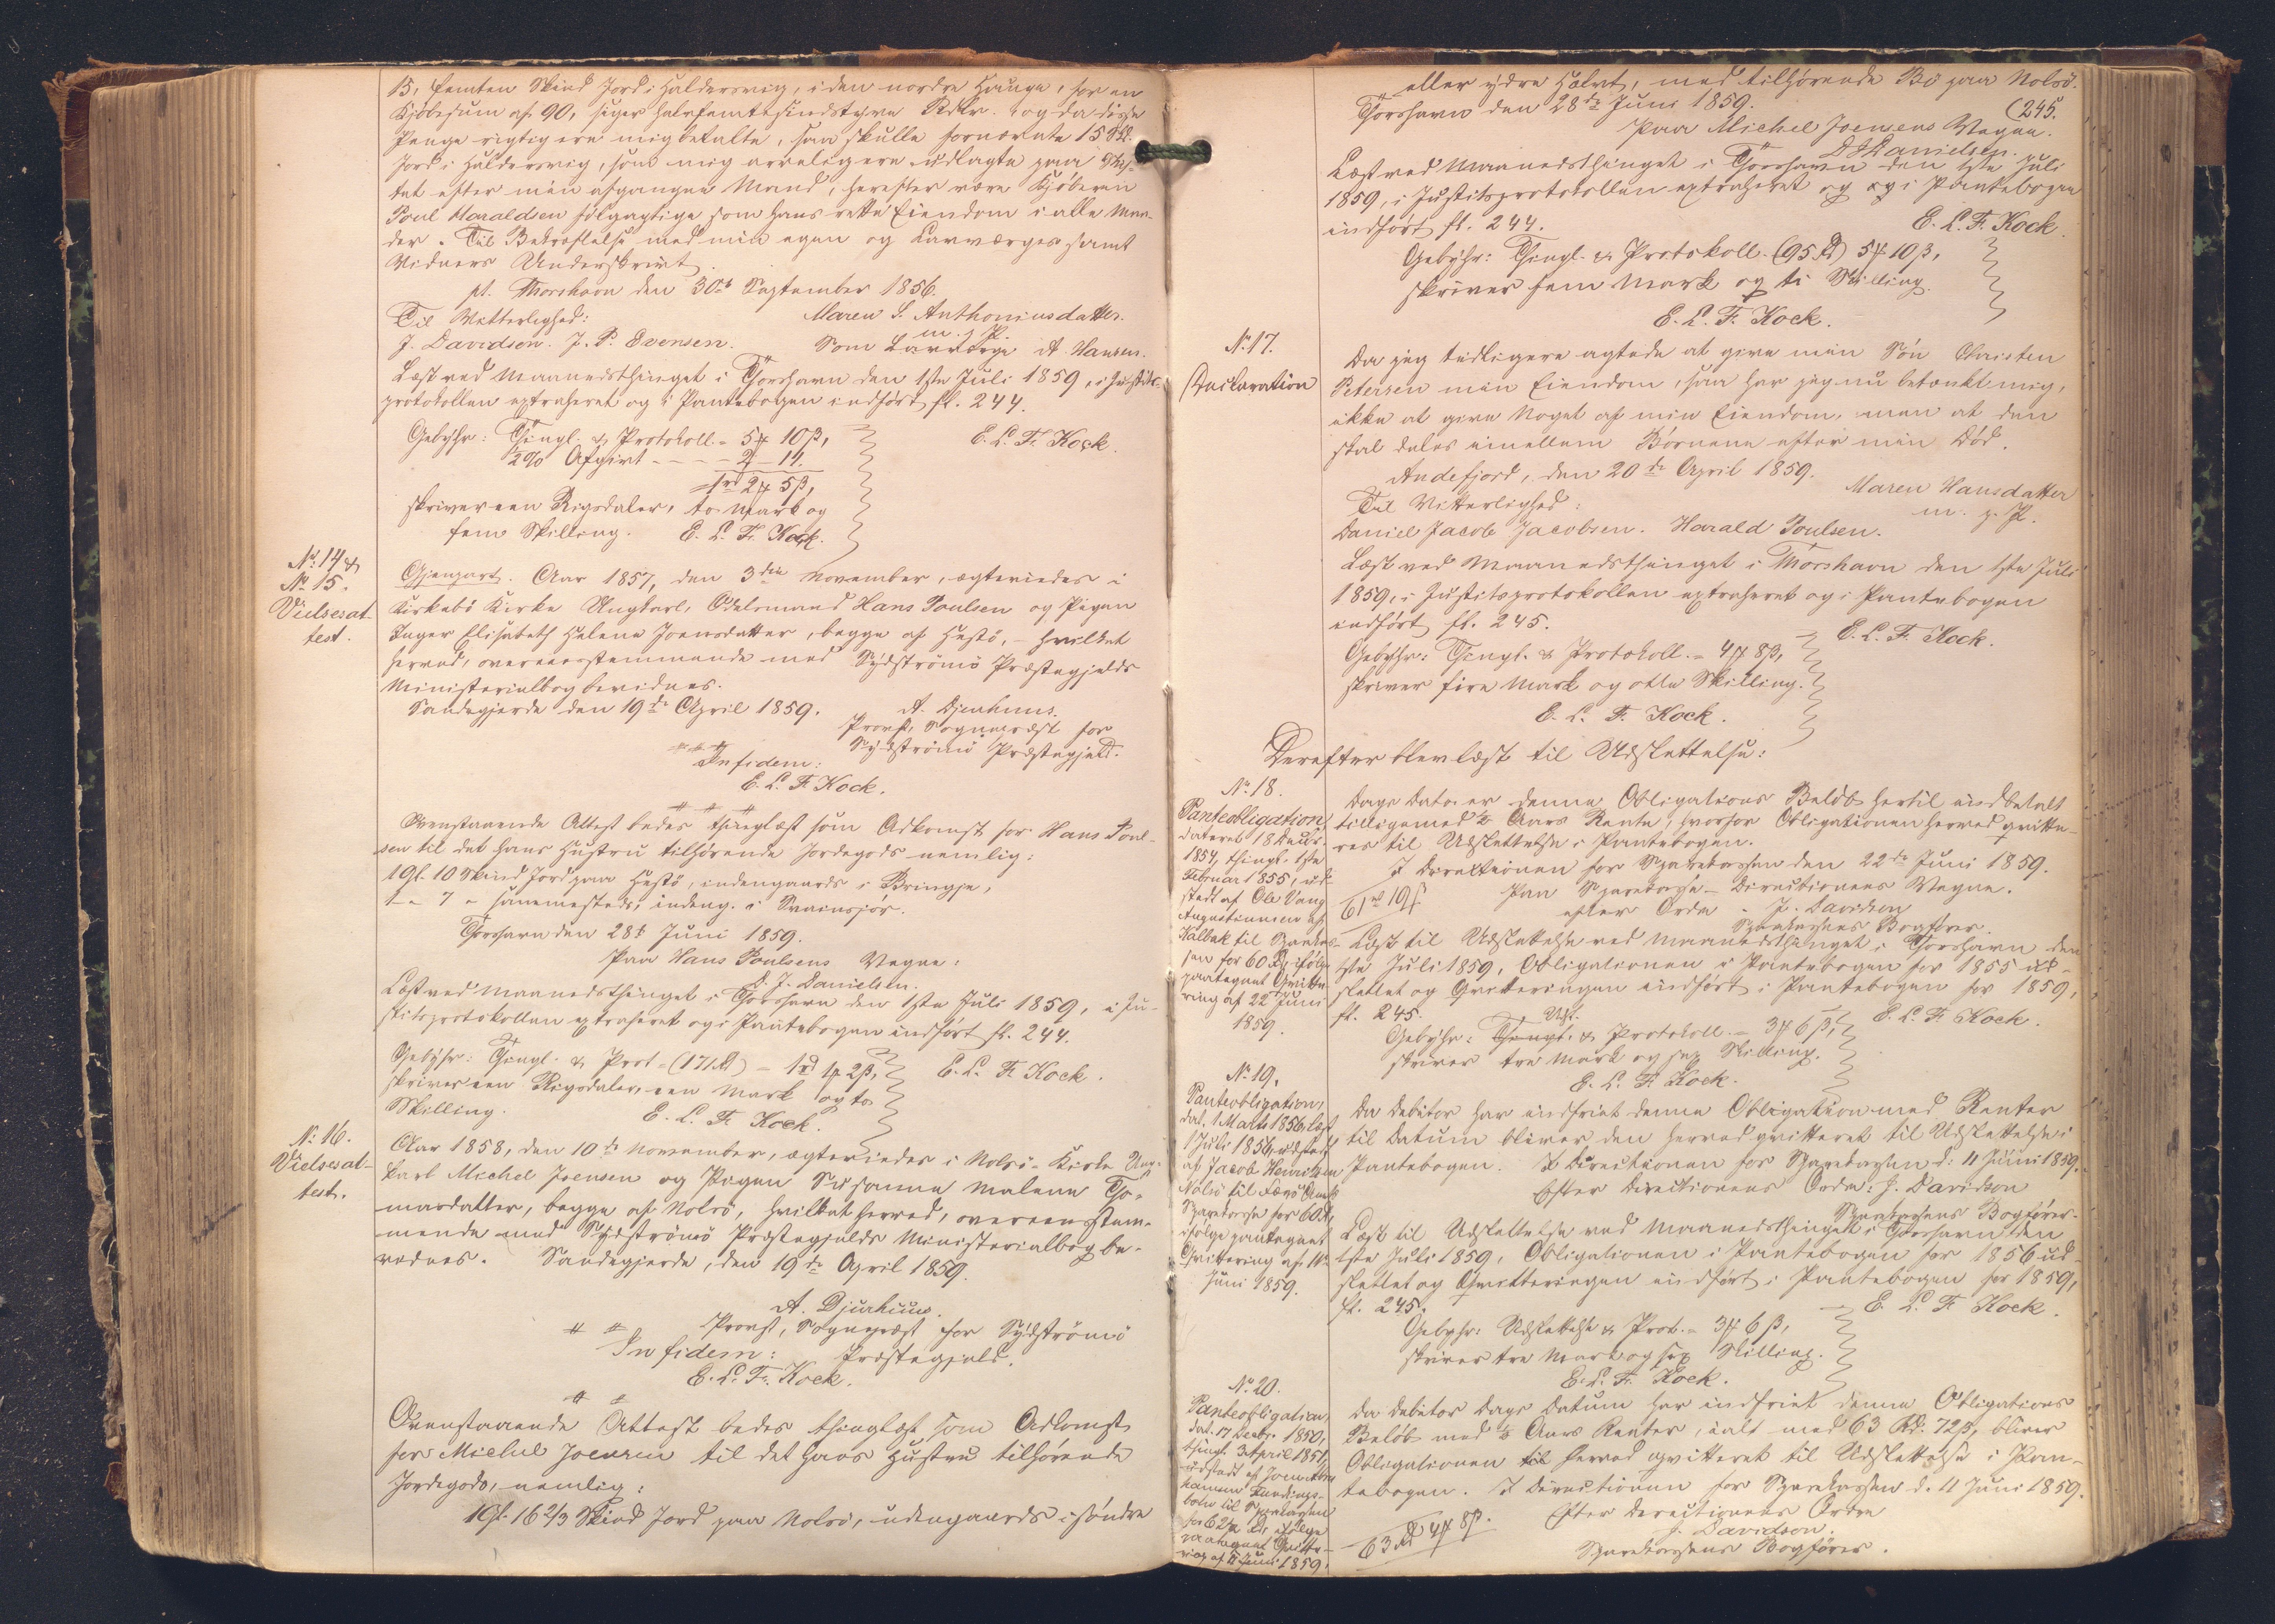 15, femten Skind Jord i Haldersvig, i den nordre Hauge, for en
Kjøbesum af 90, siger halvfemtesindstyve Rdlr. og da disse
Penge rigtig ere mig betalte, saa skulle fornævnte 15 Skd.
Jord i Haldersvig, som mig arveligere udlagte paa Skif-
tet efter min afgangne Mand, herefter være Kjøberen
Poul Haraldsen følgagtige som hans rette Eiendom i alle Maa-
der. Til Bekræftelse med min egen og Lavværges samt
Vidners Underskrivt
pt. Thorshavn den 30te September 1856.
Til Vitterlighed: Maren S. Anthoniusdatter.
m. f. P.
J. Davidsen. J. P. Evensen. Som Lavværge A. Hansen.
Læst ved Maanedsthinget i Thorshavn den 1ste Juli 1859, i Justits-
protokollen extraheret og i Pantebogen indført fl. 244.
Gebyhr: Thingl. & Protokoll. = 5 ꝟ 10 β, E. L. F. Kock.
2% Afgivt - - - 2 - 11.
1rd 2 ꝟ 5 β,
skriver een Rigsdaler, to Mark og
fem Skilling. E. L. F. Kock.
No. 14 &
No. 15.
Vielsesat-
test.
Gjenpart. Aar 1857, den 3die November, ægteviedes i
Kirkebö Kirke Ungkarl, Odelsmand Hans Poulsen og Pigen
Inger Elisabeth Helene Joensdatter, begge af Hestö, - hvilket
herved, overeensstemmende med Sydströmö Præstegjelds
Ministerialbog bevidnes.
Sandegjerde den 19de April 1859. A. Djurhuus.
Provst, Sognepræst for
Sydströmö Præstegjeld.
In fidem:
E. L. F. Kock.
Ovenstaaende Attest bedes thinglæst som Adkomst for Hans Poul-
sen til det hans Hustru tilhørende Jordegods nemlig:
1 Gl. 10 Skind Jord paa Hestö, indengaards i Bringje,
1 - 7 - sammesteds, indeng. i Svainsjör.
Thorshavn den 28de Juni 1859.
Paa Hans Poulsens Vegne:
D. J. Danielsen.
Læst ved Maanedsthinget i Thorshavn den 1ste Juli 1859, i Ju-
stitsprotokollen extraheret og i Pantebogen indført fl. 244.
Gebyhr: Thingl. & Prot. = (171 Rd) - 1rd 1 ꝟ 2 β, E. L. F. Kock.
skriver een Rigsdaler, een Mark og to
Skilling. E. L. F. Kock.
No. 16.
Vielsesat-
test.
Aar 1858, den 10de November, ægteviedes i Nolsö-Kirke Ung-
karl Michel Joensen og Pigen Susanna Malene Tho-
masdatter, begge af Nolsö, hvilket herved, overeensstem-
mende med Sydströmö Præstegjelds Ministerialbog be-
vidnes. Sandegjerde, den 19de April 1859.
A. Djurhuus.
Provst, Sognepræst for Sydströmö
In fidem: Præstegjeld.
E. L. F. Kock.
Ovenstaaende Attest bedes thinglæst som Adkomst
for Michel Joensen til det hans Hustru tilhørende
Jordegods, nemlig:
1 Gl. 16 2/3 Skind Jord paa Nolsö, udengaards i søndre
eller ydre Halvt, med tilhørende Bö paa Nolsö.
Thorshavn den 28de Juni 1859. (245.
Paa Michel Joensens Vegne.
D J Danielsen.
Læst ved Maanedsthinget i Thorshavn den 1ste Juli
1859, i Justitsprotokollen extraheret og og i Pantebogen
indført fl. 244. E. L. F. Kock.
Gebyhr: Thingl. & Protokoll. (95 Rd) 5 ꝟ 10 β,
skriver fem Mark og ti Skilling.
E. L. F. Kock.
No. 17.
Declaration
Da jeg tidligere agtede at give min Sön Christen
Petersen min Eiendom, saa har jeg nu betænkt mig,
ikke at give Noget af min Eiendom, men at den
skal deles imellem Børnene efter min Død.
Andefjord, den 20de April 1859.
Til Vitterlighed: Maren Hansdatter
m. f. P.
Daniel Jacob Jacobsen. Harald Poulsen.
Læst ved Maanedsthinget i Thorshavn den 1ste Juli
1859, i Justitsprotokollen extraheret og i Pantebogen
indført fl. 245. E. L. F. Kock.
Gebyhr: Thingl. & Protokoll. = 4 ꝟ 8 β,
skriver fire Mark og otte Skilling.
E. L. F. Kock.
Derefter blev læst til Udslettelse:
No. 18.
Panteobligation,
dateret 18 Decbr.
1854, thingl. 1ste
Februar 1855, ud-
stedt af Ole Vang
Augustinussen af
Kalbak til Sparekas-
sen for 60 Rd, ifølge
paategnet Qvitte-
ring af 22 Juni
1859.
Dags Dato er denne Obligations Beløb hertil indbetalt
tilligemed ½ Aars Rente, hvorfor Obligationen herved qvitte-
res til Udslettelse i Pantebogen.
I Directionen for Sparekassen den 22de Juni 1859.
61rd 19 β Paa Sparekasse-Directionens Vegne.
efter Ordre - J. Davidsen
Sparekassens Bogfører.
Læst til Udslettelse ved Maanedsthinget i Thorshavn den
1ste Juli 1859, Obligationen i Pantebogen for 1855 ud-
slettet og Qvitteringen indført i Pantebogen for 1859,
fl. 245. E. L. F. Kock.
Udsl.
Gebyhr: Thingl. & Protokoll. = 3 ꝟ 6 β,
skriver tre Mark og sex Skilling.
E. L. F. Kock.
No. 19.
Panteobligation,
dat. 1 Marts 1856, læst
1 Juli 1856, udstedt
af Jacob Henriksen
Nolsö til Færö Amts
Sparekasse for 60 Rd,
ifølge paategnet
Qvittering af 11te
Juni 1859.
Da Debitor har indfriet denne Obligation med Renter
til Datum bliver den herved qvitteret til Udslettelse i
Pantebogen. I Directionen for Sparekassen d: 11 Juni 1859.
Efter Directionens Ordre: J. Davidson
Sparekassens Bogfører.
Læst til Udslettelse ved Maanedsthinget i Thorshavn den
1ste Juli 1859, Obligationen i Pantebogen for 1856 ud-
slettet og Qvitteringen indført i Pantebogen for 1859,
fl. 245. E. L. F. Kock.
Gebyhr: Udslettelse & Prot. = 3 ꝟ 6 β,
skriver tre Mark og sex Skilling.
E. L. F. Kock.
No. 20.
Panteobligation,
dat. 17 Decbr. 1850,
thingl. 3 April 1851,
udstedt af
til Sparekassen
for 62½ Rd, ifølge
paategnet Qvitte-
ring af 11 Juni 1859.
Da Debitor Dags Datum har indfriet denne Obligations
Beløb med ½ Aars Renter, ialt med 63 Rd. 72 β, bliver
Obligationen til herved qvitteret til Udslettelse i Pan-
tebogen. I Directionen for Sparekassen d. 11 Juni 1859.
Efter Directionens Ordre
63 Rd 4 ꝟ 8 β. J. Davidson.
Sparekassens Bogfører.